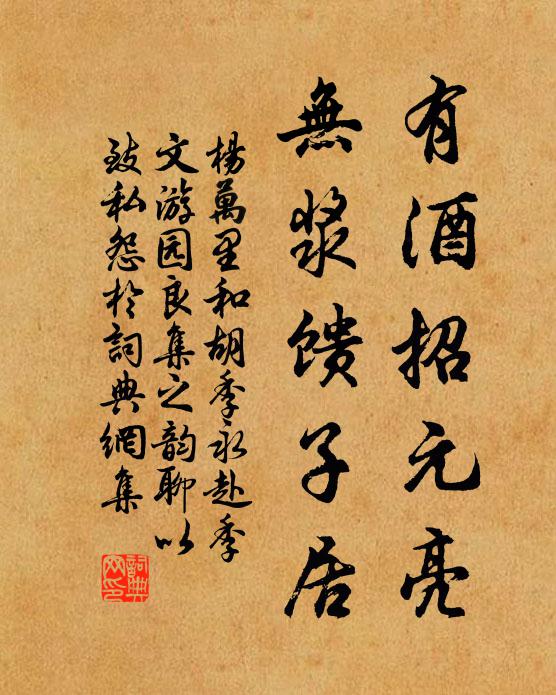 有酒招元亮
無漿馈子居
楊萬里和胡季永赴季
文游园良集之韵聊以
致私怨於詞典網集
詞典网印